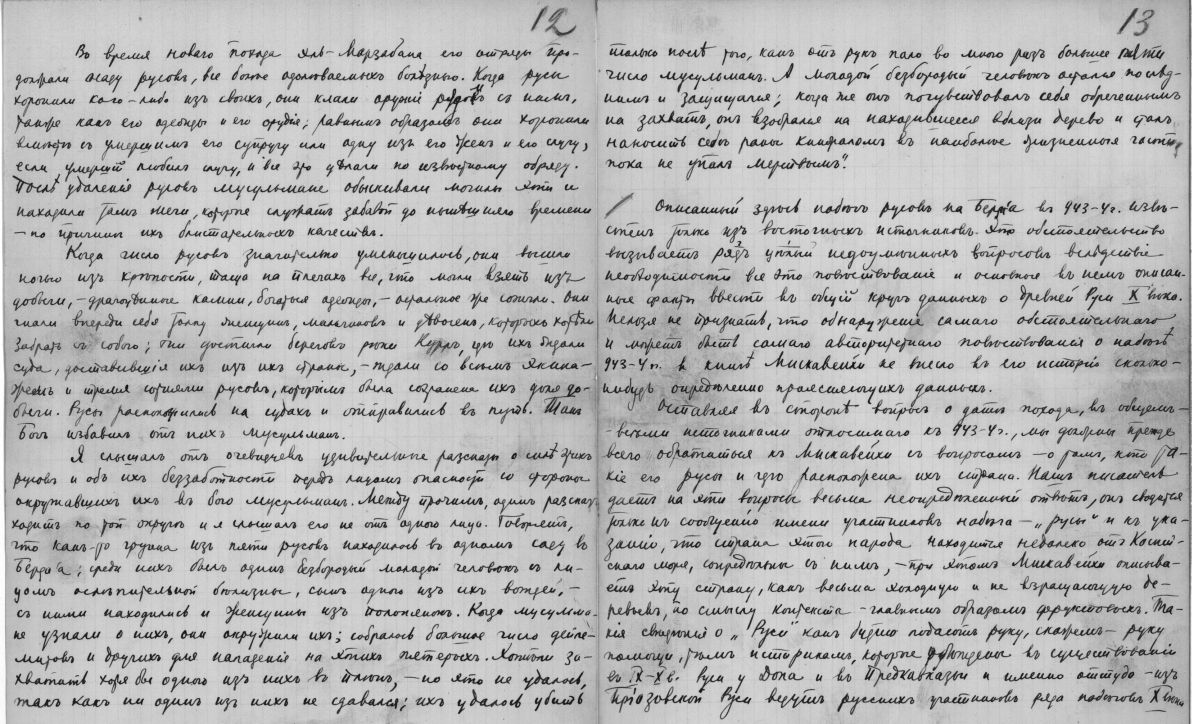 12
Во время новаго похода Яль-Марзабана его отряды про-
должали осаду русовъ, все более одолеваемыхъ болѣзнью. Когда русы
хоронили кого-либо изъ своихъ, они клали оружие съ нимъ,
также какъ его одежды и его орудія; равнымъ образомъ они хоронили
вмѣстѣ съ умершимъ его супругу или одну изъ его женъ и его слугу,
если умершій любилъ слугу, и все это дѣлали по извѣстному обряду.
Послѣ удаленія русовъ мусульмане обыскивали могилы эти и
находили тамъ мечи, которые служатъ забавой до нынѣшняго времени
– по причинѣ ихъ блистательныхъ качествъ.
Когда число русовъ значительно уменьшилось, они вышли
ночью изъ крѣпости, таща на плечахъ все, что могли взять изъ
добычи, – драгоцѣнные камни, богатые одежды, – остальное же сожгли. Они
гнали впереди себя толпу женщинъ, мальчиковъ и дѣвочекъ, которыхъ хотѣли
забрать съ собою; они достигли береговъ рѣки Куры, гдѣ ихъ ждали
суда, доставившія ихъ изъ ихъ странъ, – ждали со всѣмъ экипа-
жемъ и тремя сотнями русовъ, которымъ была сохранена ихъ доля до-
бычи. Русы расположились на судахъ и отправились въ путь. Такъ
Богъ избавилъ отъ нихъ мусульманъ.
Я слышалъ отъ очевидцевъ удивительные разсказы о силѣ этихъ
русовъ и объ ихъ беззаботности передъ лицомъ опасности со стороны
окружавшихъ ихъ въ бою мусульманъ. Между прочимъ, одинъ разсказ
ходитъ по той округѣ и я слышалъ его не отъ одного лица. Говорятъ,
что какъ-то группа изъ пяти русовъ находилось въ одномъ саду въ
Бердаа; среди нихъ былъ одинъ безбородый молодой человѣкъ съ ли-
цомъ ослѣпительной бѣлизны, сынъ одного изъ ихъ вождей, –
съ ними находились и женщины изъ полонянокъ. Когда мусульма-
не узнали о нихъ, они окружили ихъ; собралось большое число дейле-
митовъ и другихъ для нападенія на этихъ пятерыхъ. Хотѣли за-
хватить хотя бы одного изъ нихъ въ плѣнъ, – но это не удалось,
такъ какъ ни одинъ изъ нихъ не сдавался; ихъ удалось убить
13
только послѣ того, какъ отъ рукъ пало во много разъ большее пяти
число мусульманъ. А молодой безбородый человѣкъ остался послѣд-
нимъ и защищался; когда же онъ почувствовалъ себя обреченнымъ
на захватъ, онъ взобрался на находившееся вблизи дерево и сталъ
наносить себѣ раны кинжаломъ въ наиболѣе жизненные части,
пока не упалъ мертвымъ".
Описанный здѣсь набѣгъ русовъ на Бердаа въ 943-4 г. извѣ-
стенъ только изъ восточныхъ источниковъ. Это обстоятельство
вызываетъ рядъ недоумѣнныхъ вопросовъ вслѣдствіе
необходимости все это повѣствованіе и основные въ немъ описан-
ные факты ввести въ общій кругъ данныхъ о древней Руси X вѣка.
Нельзя не признать, что обнаруженіе самаго обстоятельнаго
и можетъ быть самаго авторитетнаго повѣствованія о набѣгѣ
943-4 г. въ книгѣ Мискавейхи не внесло въ его исторію сколько-
нибудь опредѣленно проясняющихъ данныхъ.
Оставляя въ сторонѣ вопросъ о датѣ похода, въ общемъ –
– всѣми источниками относимаго къ 943-4 г., мы должны прежде
всего обратиться къ Мискавейхи съ вопросомъ – о томъ, кто та-
кіе его русы и гдѣ расположена ихъ страна. Нашъ писатель
даетъ на эти вопросы весьма неопредѣленный отвѣтъ, онъ сводится
только къ сообщенію имени участниковъ набѣга – „русы" и къ ука-
занію, что страна этого народа находится недалеко отъ Каспій-
скаго моря, сопредѣльна съ нимъ, – при этомъ Мискавейхи описыва-
етъ эту страну, какъ весьма холодную и не взращающую де-
ревьевъ, по смыслу контекста – главнымъ образомъ фруктовыхъ. Та-
кія свѣдѣнія о „Руси" какъ будто подаютъ руку, скажемъ – руку
помощи, тѣмъ историкамъ, которые убѣждены въ существованіи
въ IX-X в. Руси у Дона и въ Предкавказьи и именно оттуда – изъ
Пріазовской Руси ведутъ русскихъ участниковъ ряда набѣговъ X вѣка